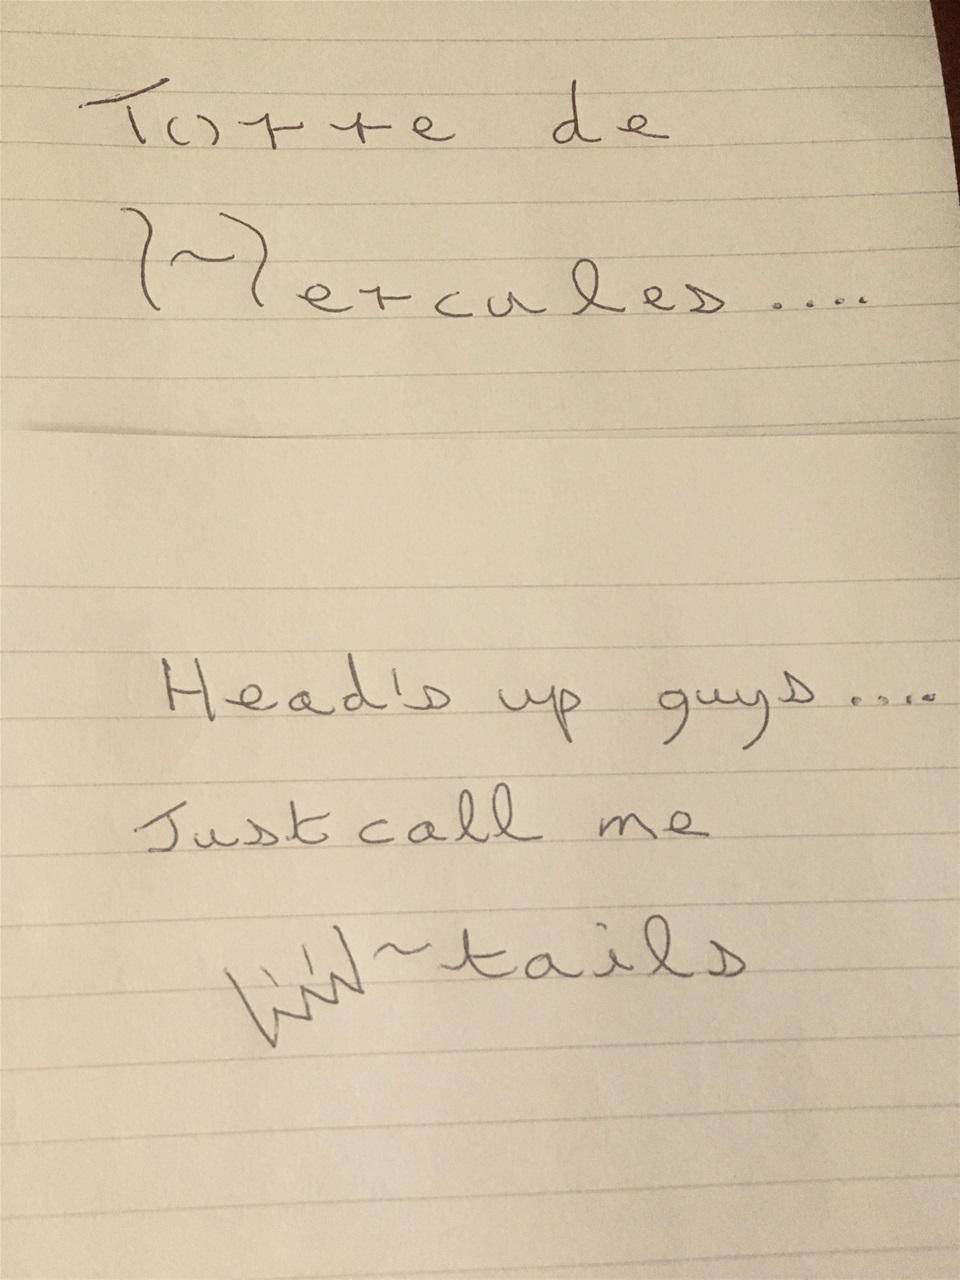 Torre de
Hercules....
Head's up guys....
Just call me
~tails